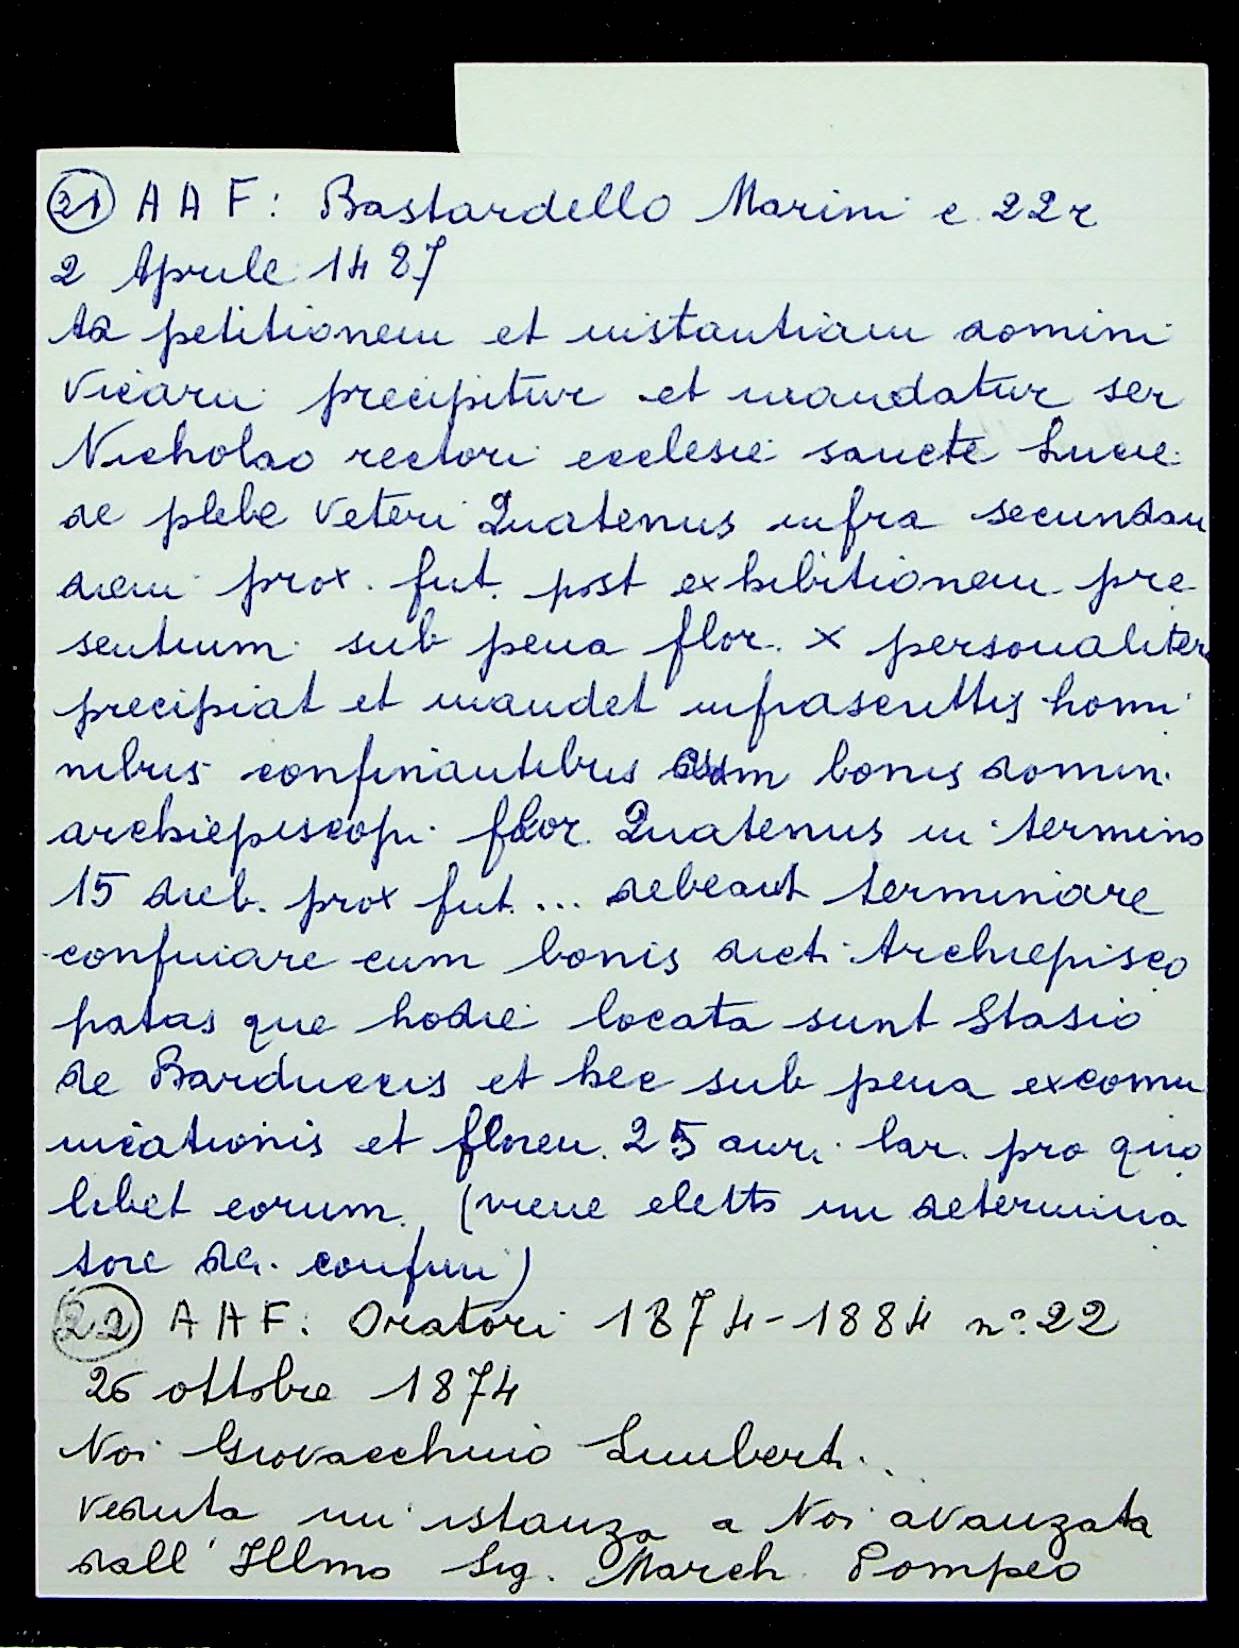 21 A A F: Bastardello Marini c. 22r
2 Aprile 1487
Ad petitionem et instantiam domini
Vicarii precipitur et mandatur ser
Nicholao rectori ecclesie sancte Lucie
de plebe Veteri Quatenus infra secundam
diem prox. fut. post exhibitionem pre
sentium sub pena flor. x personaliter
precipiat et mandet infrascrittis homi
nibus confinantibus cum bonis domin.
archiepiscopi flor. Quatenus in termino
15 dieb. prox fut. ... debeant terminare
confinare cum bonis dicti Archiepisco
patas que hodie locata sunt Stasio
de Barduccis et hec sub pena excomu
nicationis et floren. 25 aur. lar. pro quo
libet eorum. (viene eletto un determina
tore dei confini)
22 A A F: Oratori 1874-1884 n° 22
26 ottobre 1874
Noi Giovacchino Limberti..
veduta un'istanza a Noi avanzata
dall'Illmo Sig. March. Pompeo